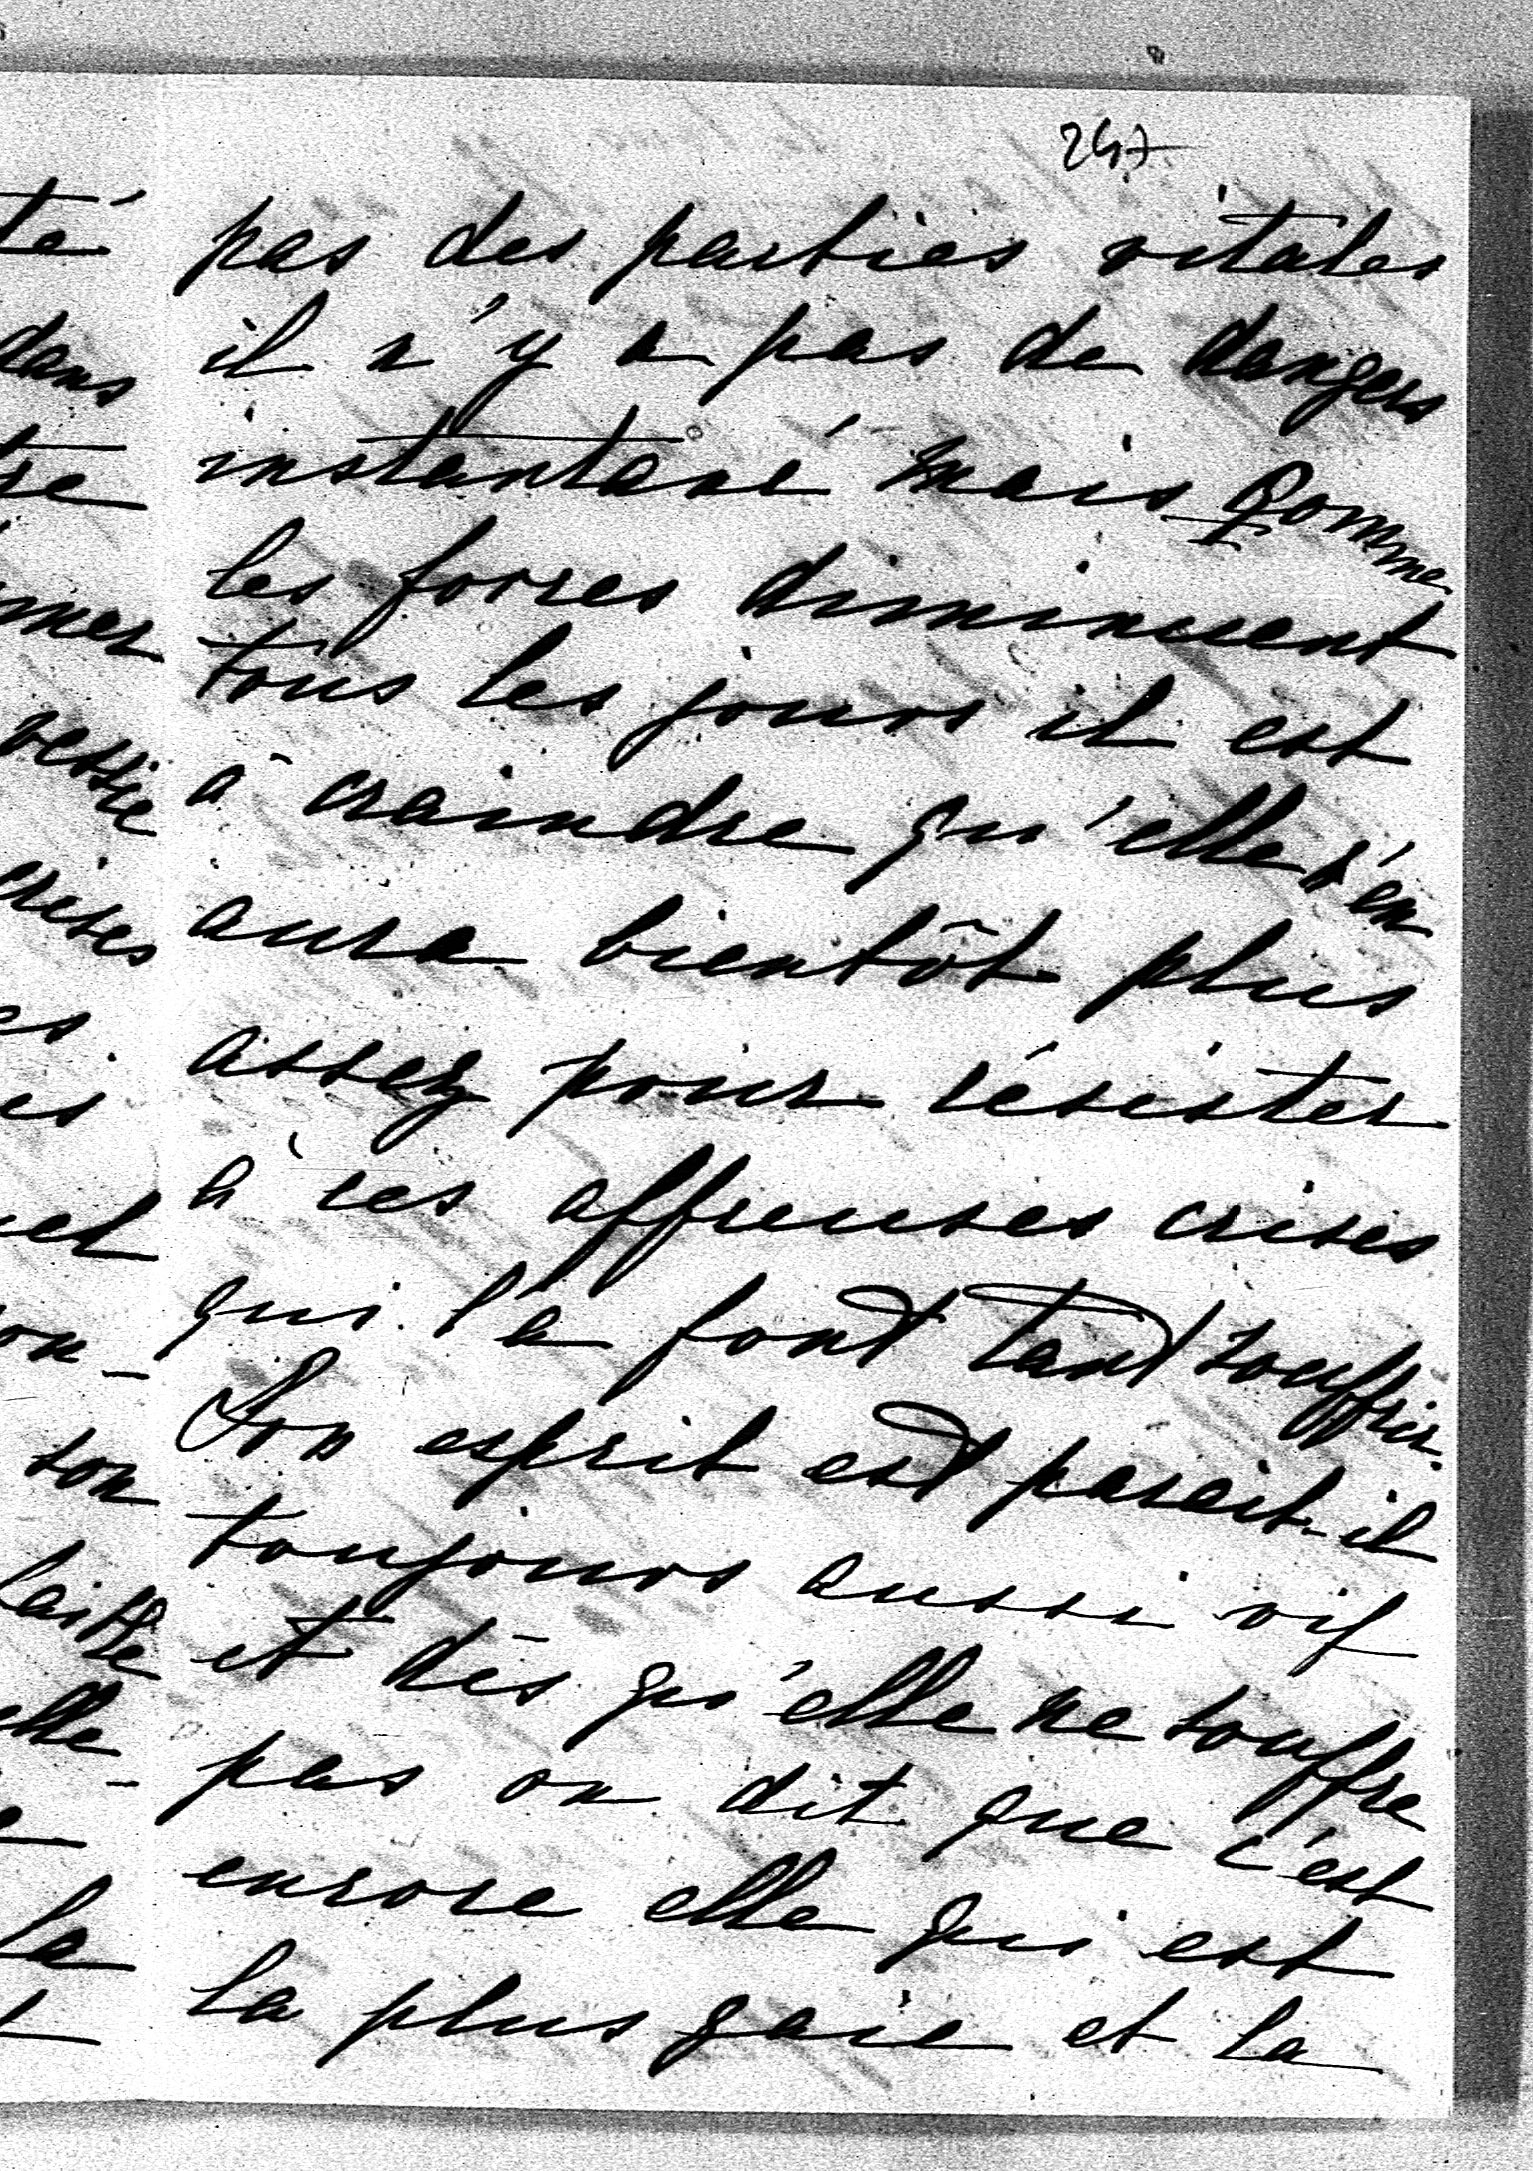 247
pas des parties vitales
il n'y a pas de dangers
instantané mais comme
les forces diminuent
tous les jours il est
à craindre qu'elle n'en
aura bientôt plus
assez pour résister
à ces affreuses crises
qui la font tant souffrir.
Son esprit est parait-il
toujours aussi vif
et dès qu'elle ne souffre
pas on dit que c'est
encore elle qui est
la plus gaie et la
té
dans
mer
vessie
crises
es
es
uel
on-
son
laisse
elle
la